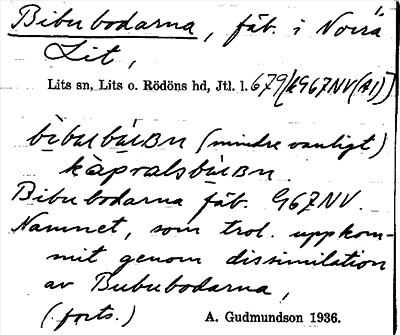 Bibubodarna, fäb. i Norra
Lit,
Lits sn, Lits o. Rödöns hd, Jtl. l. 679/(G67NV(AI))
(mindre vanligt)
Bibubodarna fäb. G67NV.
Namnet, som trol. uppkom-
mit genom dissimilation
av Bububodarna,
(forts.) A. Gudmundson 1936.